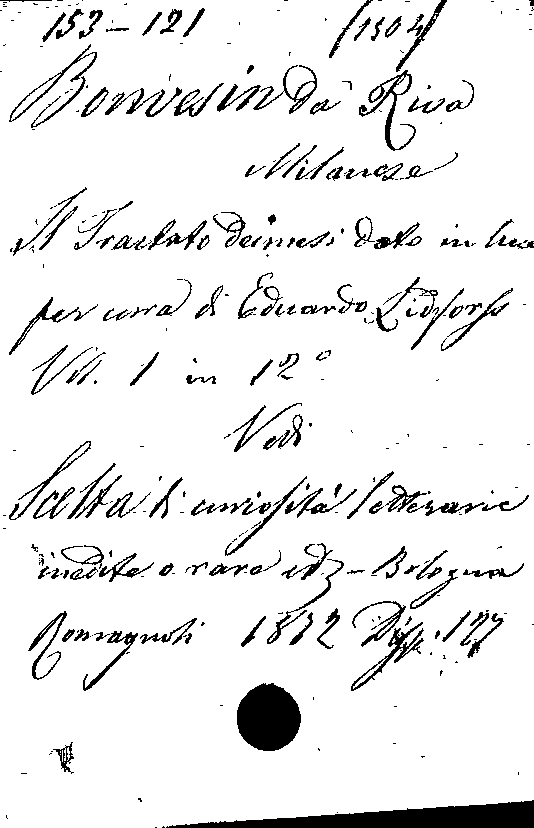 153-121 (1504)
Bonvesin da Riva
Milanese
Il Tractato dei mesi dato in luce
per cura di Eduardo Lidforss
Vol. 1 in 12°
Vedi
Scelta di curiosità letterarie
inedite o rare etz - Bologna
Romagnoli 1872 Disp. 127